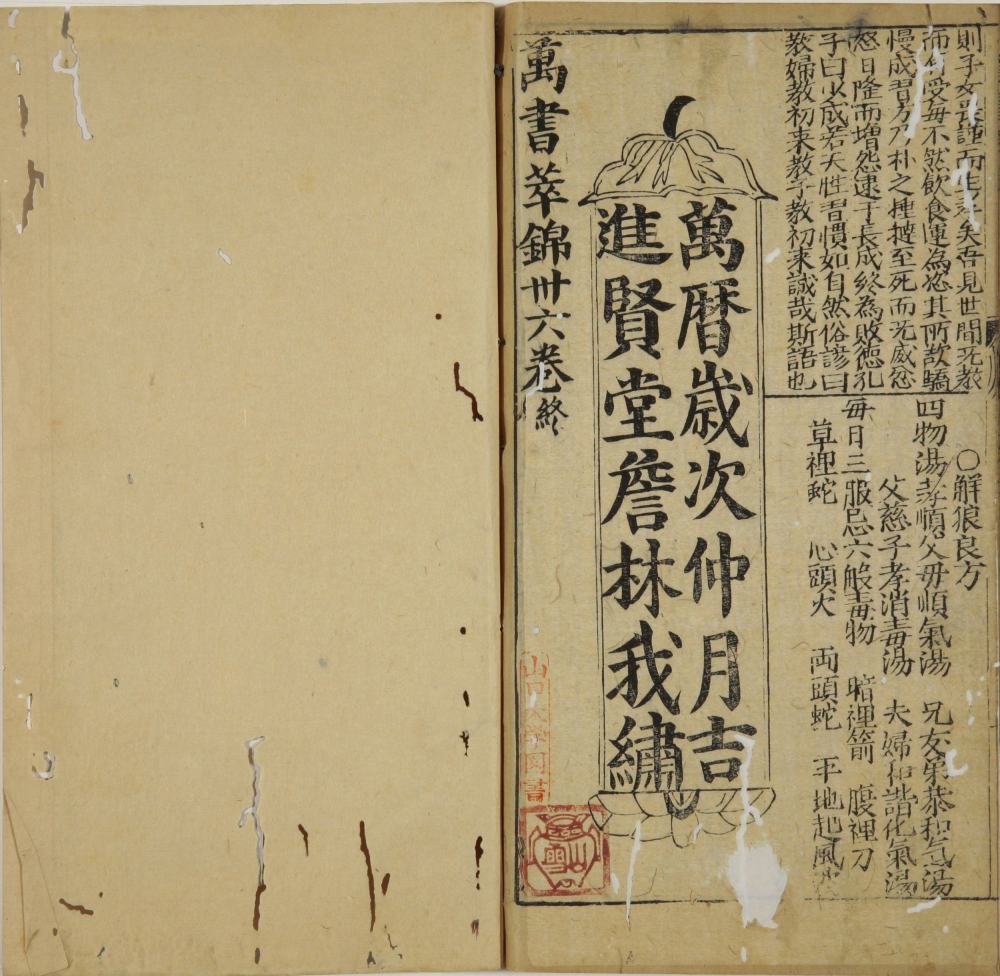 則子女畏謹而生孝矣吾見世間无教
而有受每不然飲食運為恣其所欲驕
慢成習方乃朴之捶撻至死而无威忿
怒日隆而増怨逮于長成終為敗德孔
子曰少成若天性習慣如自然俗諺曰
教婦教初来教子教初来誠哉斯語也
○解狼良方
四物湯孝順父母順氣湯 兄友弟恭和氣湯
父慈子孝消毒湯 夫婦和諧化氣湯
每日三服忌六般毒物 暗裡箭 腹裡刀
草裡蛇 心頭火 両頭蛇 平地起風
萬暦歲次仲月吉
進賢堂詹林我繡
萬書萃錦卅六卷終